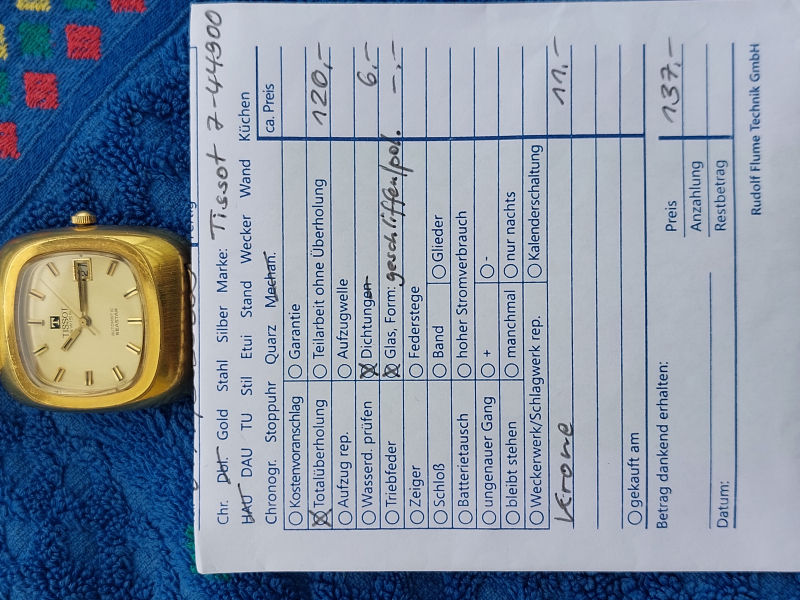 Chr. Dbl. Gold Stahl Silber Marke: Tissot 7-44900
HAU DAU TU Stil Etui Stand Wecker Wand Küchen
Chronogr. Stoppuhr Quarz Mechan. ca. Preis
Kostenvoranschlag Garantie
Totalüberholung Teilarbeit ohne Überholung 120,-
Aufzug rep. Aufzugwelle
Wasserd. prüfen Dichtungen 6,-
Triebfeder Glas, Form: geschliffen/pol. -,-
Zeiger Federstege
Schloß Band Glieder
Batterietausch hoher Stromverbrauch
ungenauer Gang + -
bleibt stehen manchmal nur nachts
Weckerwerk/Schlagwerk rep. Kalenderschaltung
Krone 11,-
gekauft am
Betrag dankend erhalten: Preis 137,-
Anzahlung
Datum: Restbetrag
Rudolf Flume Technik GmbH
T
TISSOT
AUTOMATIC
SEASTAR
27